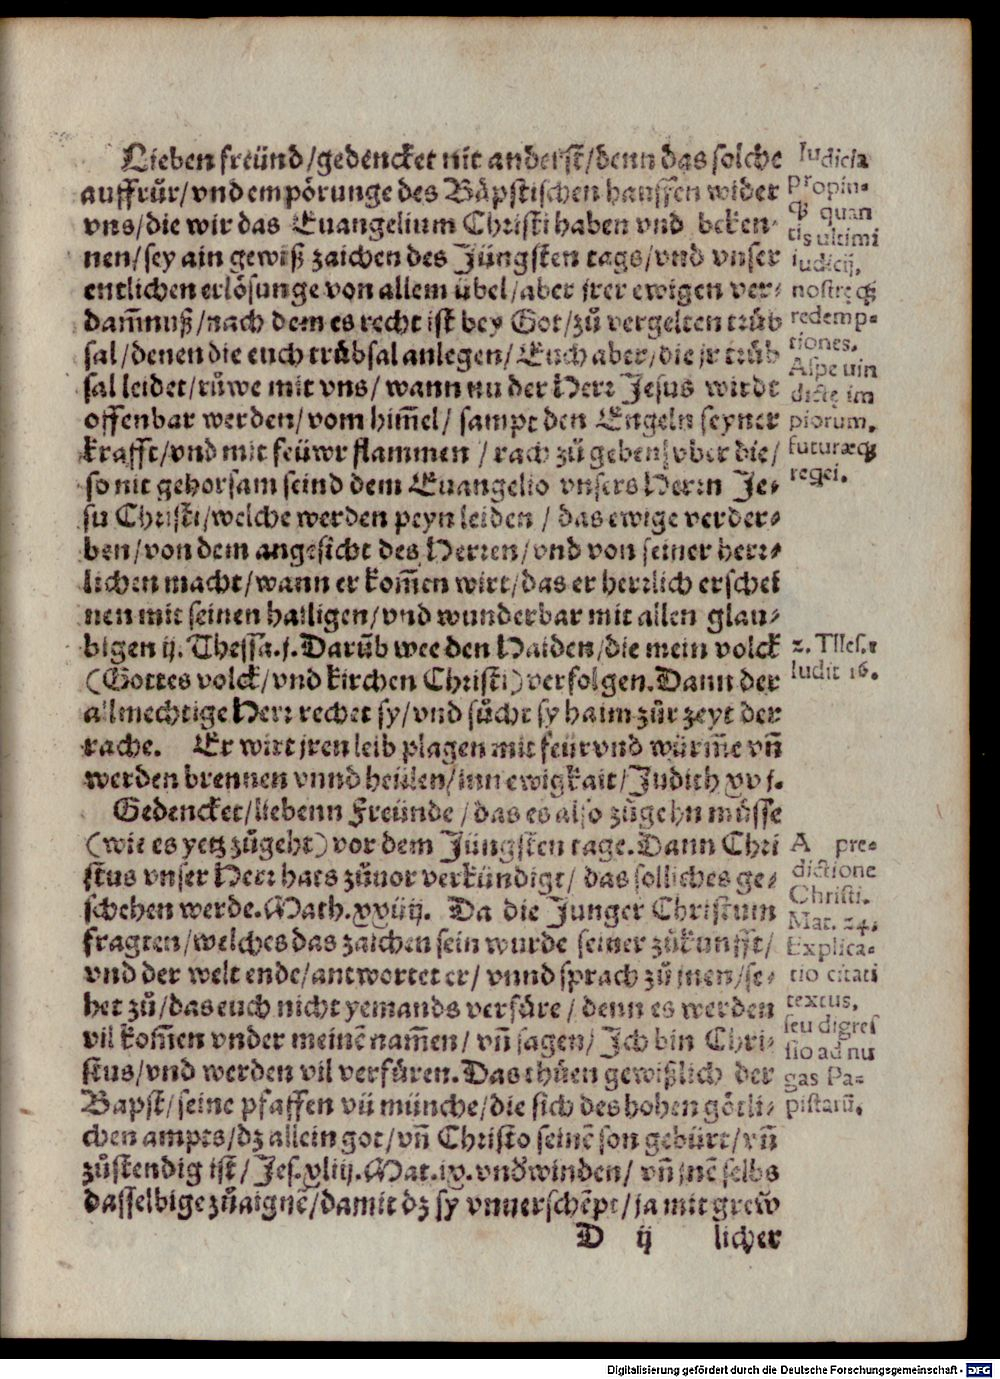 Lieben freünd/gedencket nit anderst/denn das solche
auffrůr/vnd empörunge des Bäpstischen hauffen wider
vns/die wir das Euangelium Christi haben vnd beken-
nen/sey ain gewiß zaichen des Jüngsten tags/vnd vnser
entlichen erlösunge von allem übel/aber jrer ewigen ver-
dam̃nuß/nach dem es recht ist bey Got/zů vergelten trůb
sal/denen die euch trůbsal anlegen/Euch aber/die jr trůb
sal leidet/růwe mit vns/wann nu der Herr Jesus wirdt
offenbar werden/vom him̃el/sampt den Engeln seyner
krafft/vnd mit feüwr flammen/rach zů geben/vber die/
so nit gehorsam seind dem Euangelio vnsers Herrn Je-
su Christi/welche werden peyn leiden/das ewige verder-
ben/von dem angesicht des Herren/vnd von seiner herr-
lichen macht/wann er kom̃en wirt/das er herrlich erschei
nen mit seinen hailigen/vnd wunderbar mit allen glau-
bigen ij. Thessa.j. Darůb wee den Haiden/die mein volck
(Gottes volck/vnd kirchen Christi) verfolgen. Dann der
allmechtige Herr rechet sy/vnd sůcht sy haim zůr zeyt der
rache. Er wirt jren leib plagen mit feür vnd würm̃e vñ
werden brennen vnnd heülen/inn ewigkait/Judith xvj.
Gedencket/liebenn Freünde/das es also zůgehn můsse
(wie es yetz zůgeht) vor dem Jüngsten tage. Dann Chri
stus vnser Herr hats zůuor verkündigt/das solliches ge-
schehen werde. Math.xxiiij. Da die Junger Christum
fragten/welches das zaichen sein wurde seiner zůkunfft/
vnd der welt ende/antwortet er/vnnd sprach zů jnen/se-
het zů/das euch nicht yemands verfůre/denn es werden
vil kom̃en vnder meinẽ nam̃en/vñ sagen/Ich bin Chri-
stus/vnd werden vil verfůren. Das thůen gewißlich der
Bapst/seine pfaffen vñ münche/die sich des hohen götli-
chen ampts/dz allein got/vñ Christo seinẽ son gebürt/vñ
zůstendig ist/Jes.xliij. Mat.ix. vnderwinden/vñ jnẽ selbs
dasselbige zůaignẽ/damit dz sy vnuerschẽpt/ja mit grew̃
D ij licher
Iudicia
Propin-
q̃ quan
tis ultimi
iudicij,
nostręq́
redemp-
tiones.
Aspe uin
dictę im
piorum,
futuræq́
regei.
2. Thes.1
Iudit 16.
A pre-
dictione
Christi.
Mat. 24.
Explica-
tio citati
textus,
seu digres
sio ad nu
gas Pa-
pistarũ.
Digitalisierung gefördert durch die Deutsche Forschungsgemeinschaft - DFG